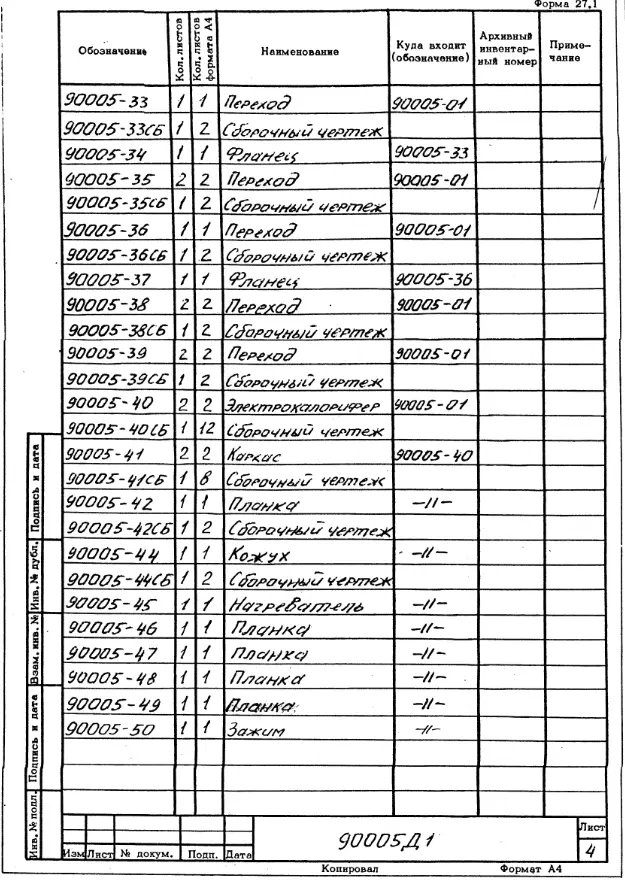 Форма 27,1
Обозначение Кол. листов Кол. листов формата А4 Наименование Куда входит (обозначение) Архивный инвентарный номер Примечание
90005-33 1 1 Переход 90005-01
90005-33СБ 1 2 Сборочный чертеж
90005-34 1 1 Фланец 90005-33
90005-35 2 2 Переход 90005-01
90005-35СБ 1 2 Сборочный чертеж
90005-36 1 1 Переход 90005-01
90005-36СБ 1 2 Сборочный чертеж
90005-37 1 1 Фланец 90005-36
90005-38 2 2 Переход 90005-01
90005-38СБ 1 2 Сборочный чертеж
90005-39 2 2 Переход 90005-01
90005-39СБ 1 2 Сборочный чертеж
90005-40 2 2 Электрокалорифер 90005-01
90005-40СБ 1 12 Сборочный чертеж
90005-41 2 2 Каркас 90005-40
90005-41СБ 1 8 Сборочный чертеж
90005-42 1 1 Планка —//—
90005-42СБ 1 2 Сборочный чертеж
90005-44 1 1 Кожух —//—
90005-44СБ 1 2 Сборочный чертеж
90005-45 1 1 Нагреватель —//—
90005-46 1 1 Планка —//—
90005-47 1 1 Планка —//—
90005-48 1 1 Планка —//—
90005-49 1 1 Планка —//—
90005-50 1 1 Зажим —//—
Подпись и дата
Инв. № дубл.
Взам. инв. №
Подпись и дата
Инв. № подл.
Изм Лист № докум. Подп. Дата
90005Д1
Лист
4
Копировал Формат А4